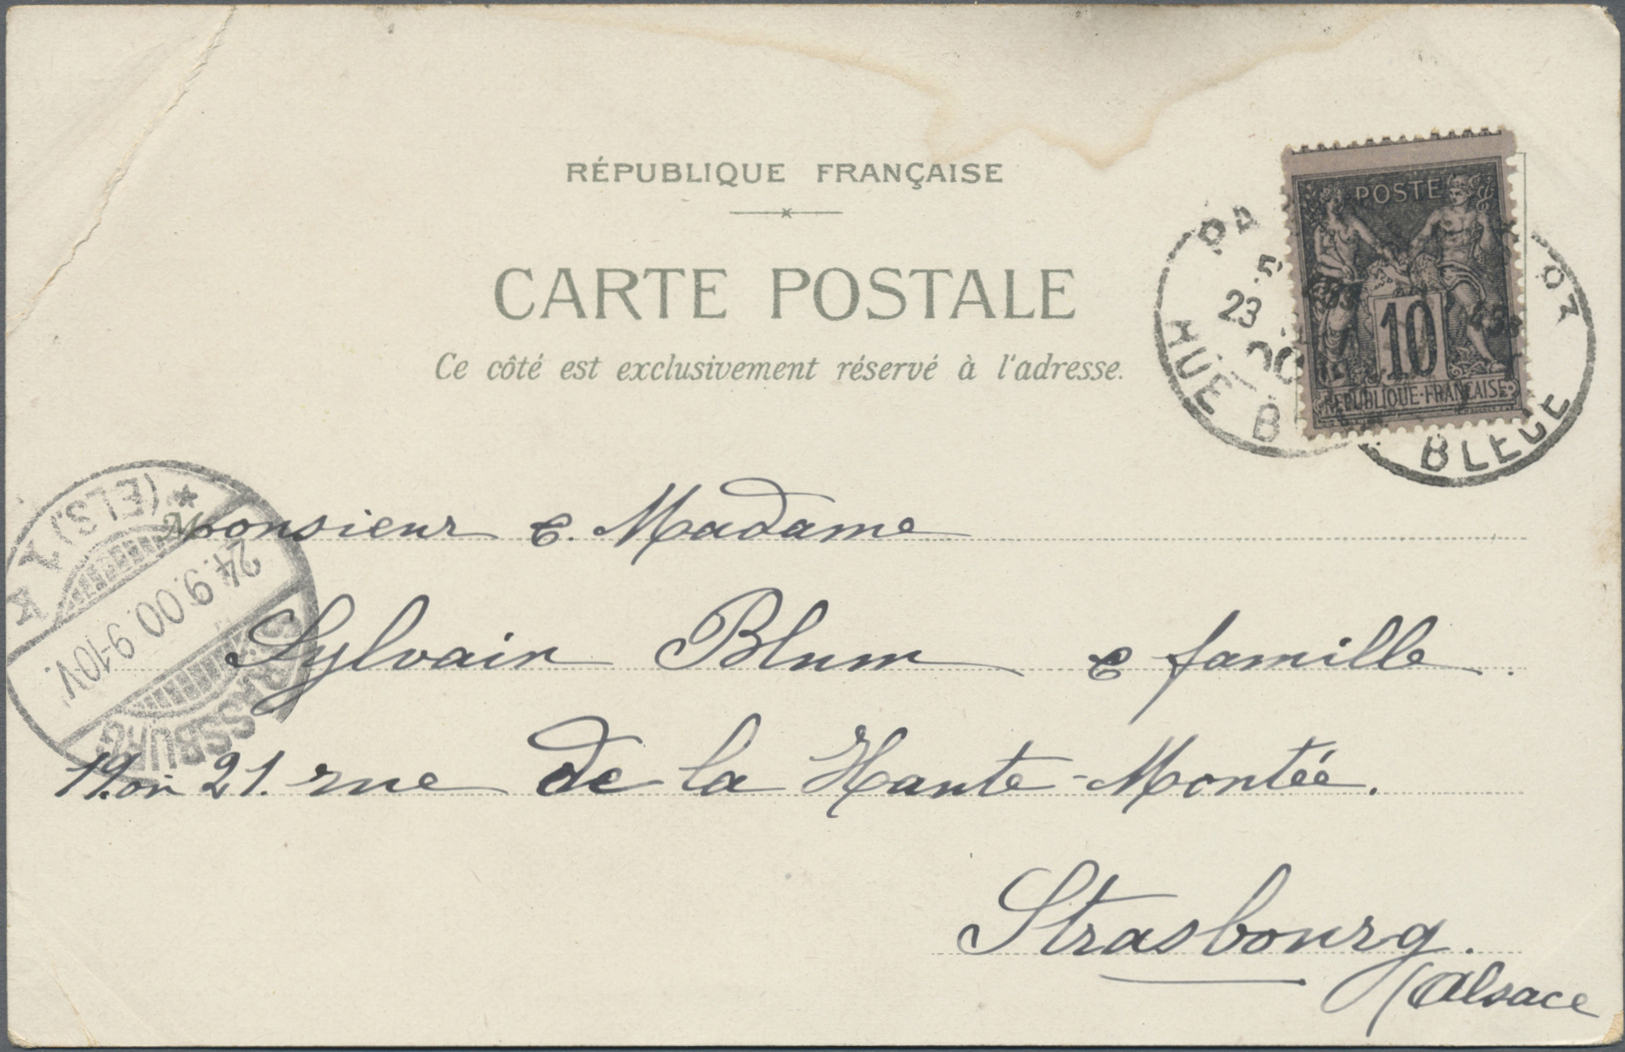 RÉPUBLIQUE FRANÇAISE
CARTE POSTALE
Ce côté est exclusivement réservé à l'adresse.
POSTE
10
REPUBLIQUE-FRANÇAISE
PA
23
BLEUE
HUE B
Monsieur & Madame
Sylvain Blum & famille.
19. ou 21. rue de la Haute-Montée.
Strasbourg.
(Alsace
STRASSBURG
24.9.00.9-10V.
* (ELS.) 1 K